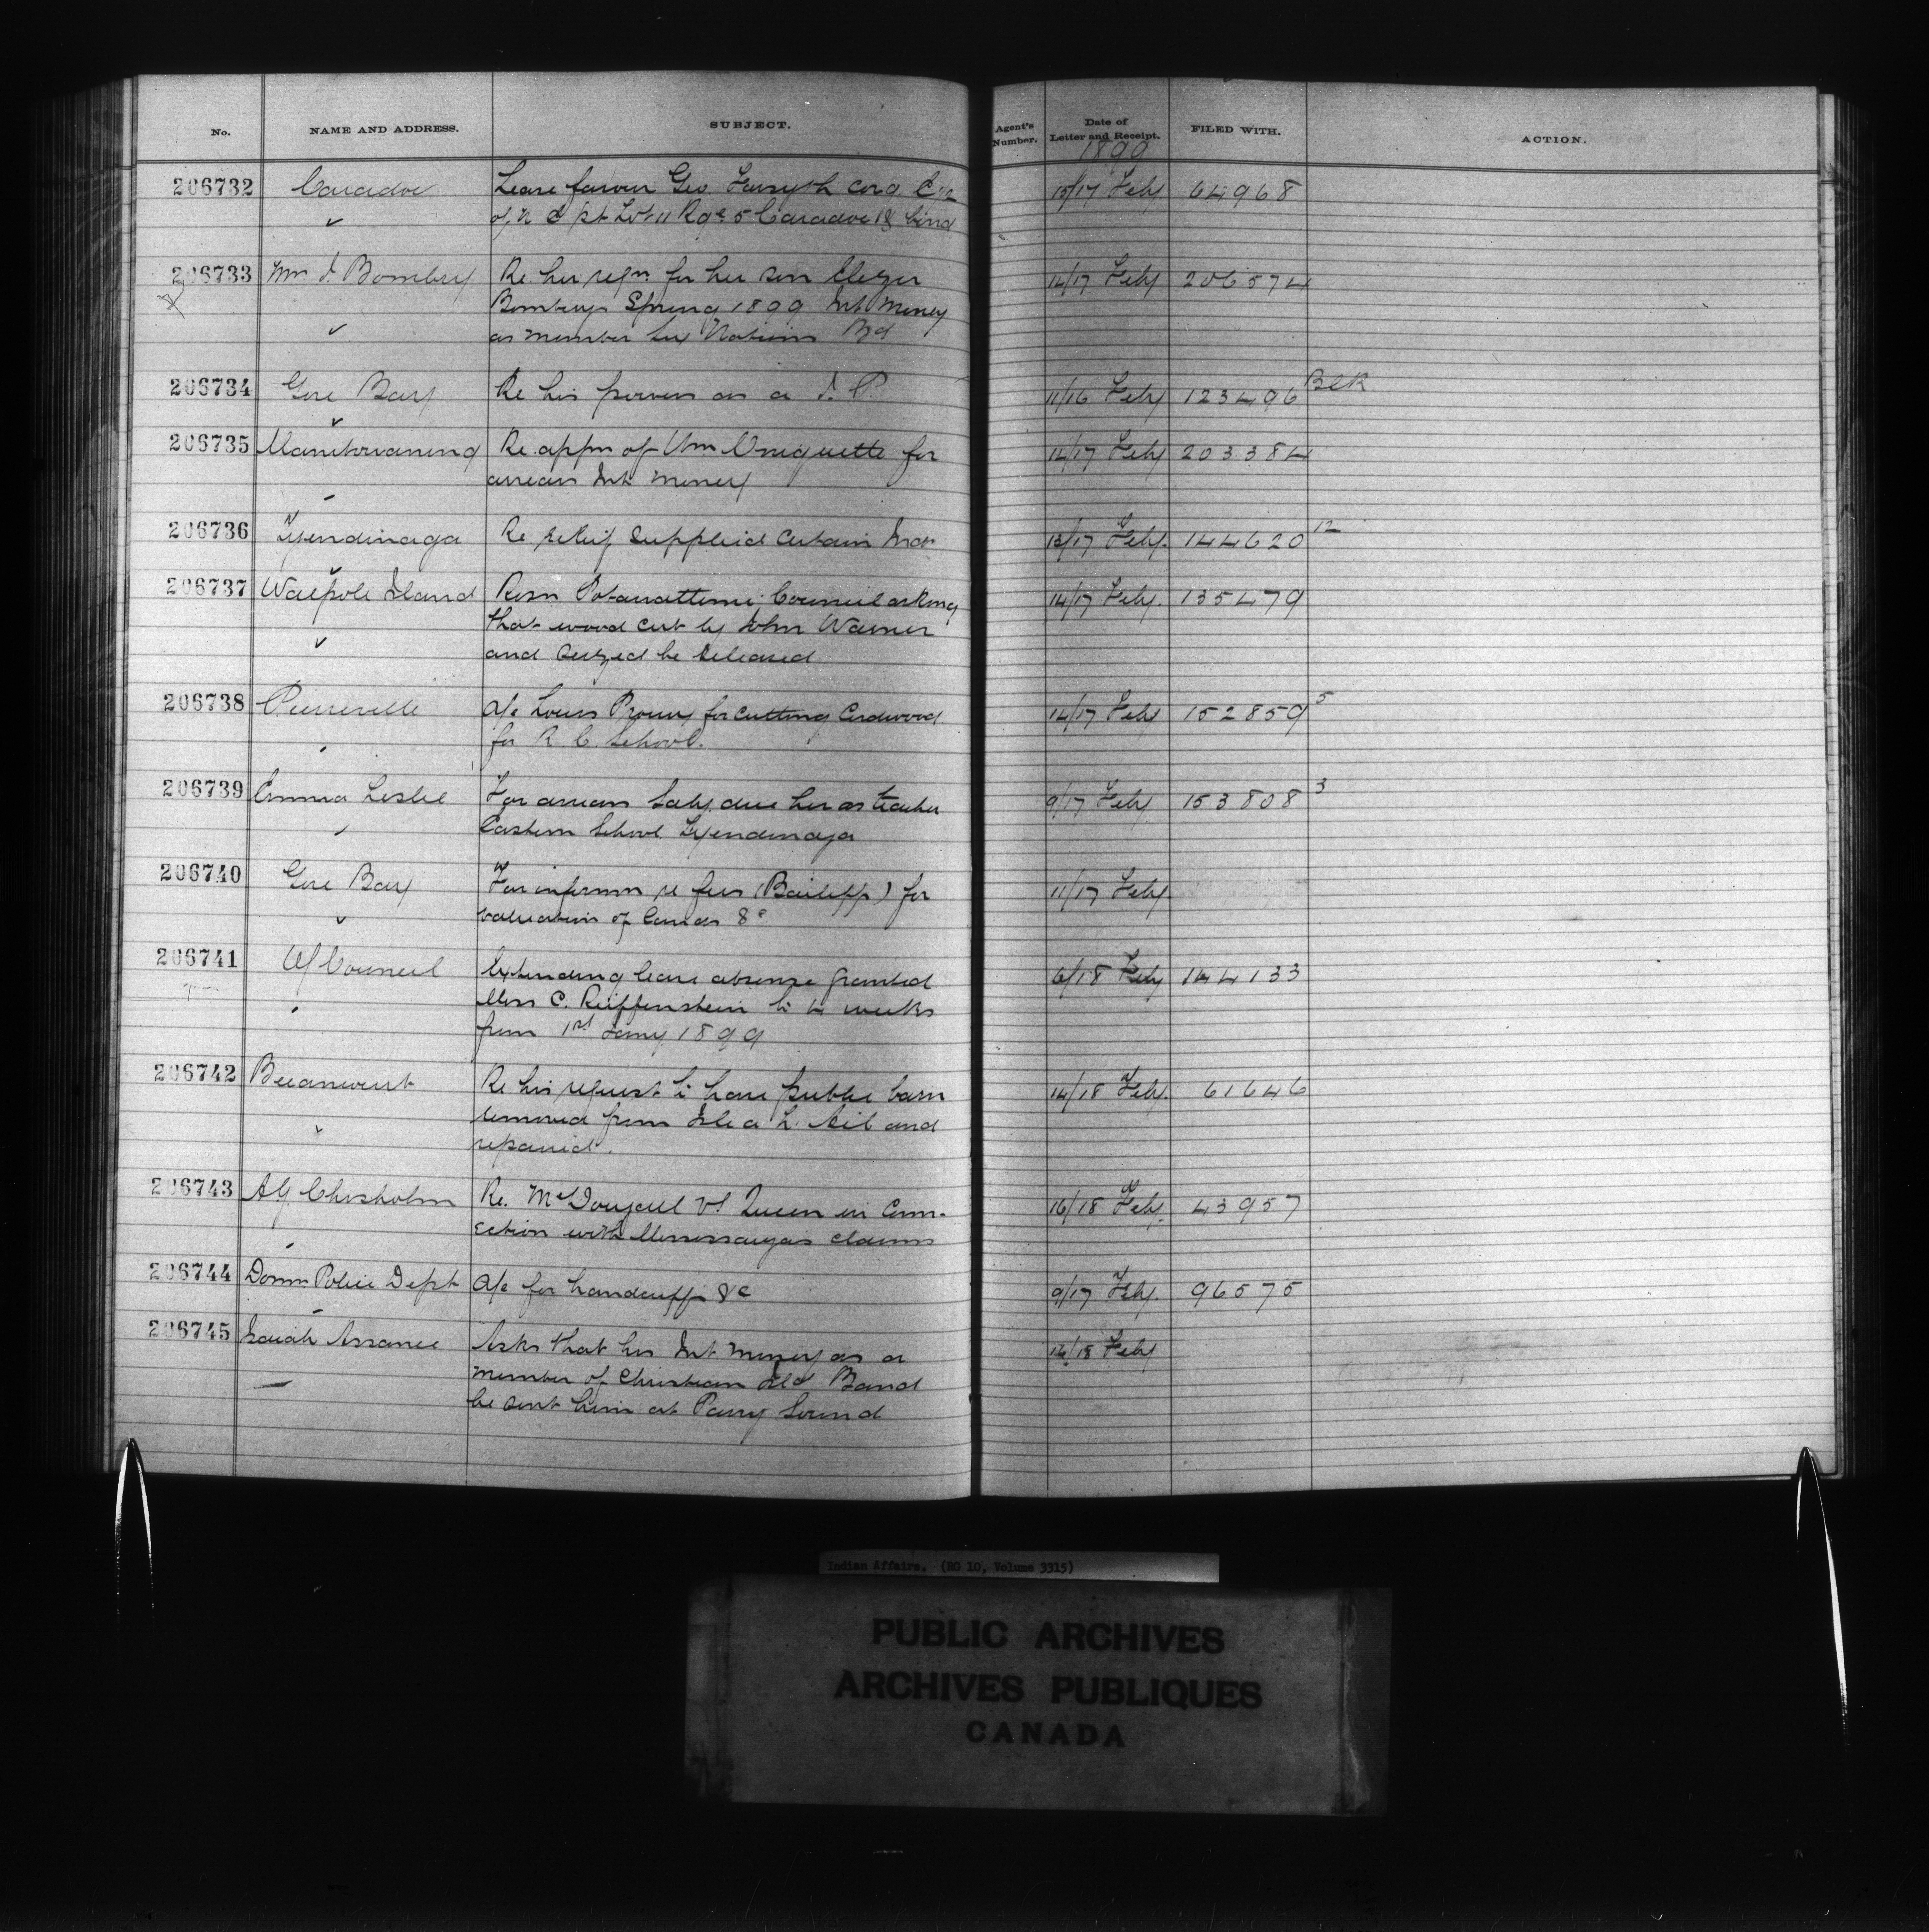 No.
NAME AND ADDRESS.
SUBJECT.
Agent's Number.
Date of Letter and Receipt.
FILED WITH.
ACTION.
1899
206732 Caradoc Lease favour Geo. Forsyth 15/17 Feby 64968
of N Pt Lot 11 Rge 5 Caradoc
206733 Bomberry Re her reqn. for her son 14/17 Feby 206574
Bomberrys Spring 1899 Int Money
as member Six Nations Bd
206734 Gore Bay Re his powers as a J. P. 11/16 Feby 123496 BLR
206735 Manitowaning Re appn of Wm for 14/17 Feby 203384
arrears Int Money
206736 Tyendinaga Re relief supplied certain Inds 13/17 Feby. 144620 12
206737 Walpole Island Resn Potawattomi Council asking 14/17 Feby. 135479
that wood cut by John Warner
and seized be released
206738 Pierreville a/c Louis for cutting Cordwood 14/17 Feby 152859 5
for R. C. School.
206739 Emma Leslie For arrears Saly. due her as teacher 9/17 Feby 153808 3
Eastern School Tyendinaga
206740 Gore Bay For informn re fees (Bailiff) for 11/17 Feby.
valuation of lands &c
206741 O/Council Extending leave absence granted 6/18 Feby 144133
Miss C. Reiffenstein to weeks
from 1st Jany 1899
206742 Becancourt Re his request to have public barn 14/18 Feby. 61646
removed from Isle a L. and
repaired.
206743 A.G. Chisholm Re. McDougall vs Queen in Conn- 16/18 Feby. 43957
ection with Mississaugas claims
206744 Domn. Police Dept a/c for handcuffs &c 9/17 Feby. 96575
206745 Isaiah Assance Asks that his Int money as a 14/18 Feby
member of Christian Ild Band
be sent him at Parry Sound
Indian Affairs. (RG 10, Volume 3315)
PUBLIC ARCHIVES
ARCHIVES PUBLIQUES
CANADA